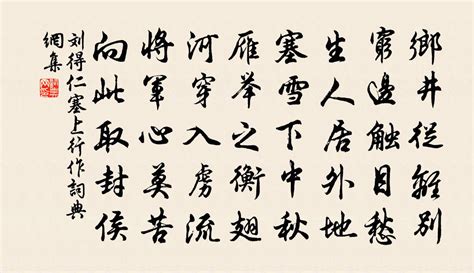 鄉井從離別
窮邊觸目愁
生人居外地
塞雪下中秋
雁舉之衡翅
河穿入虜流
將軍心莫苦
向此取封侯
刘得仁塞上行作詞典
網集